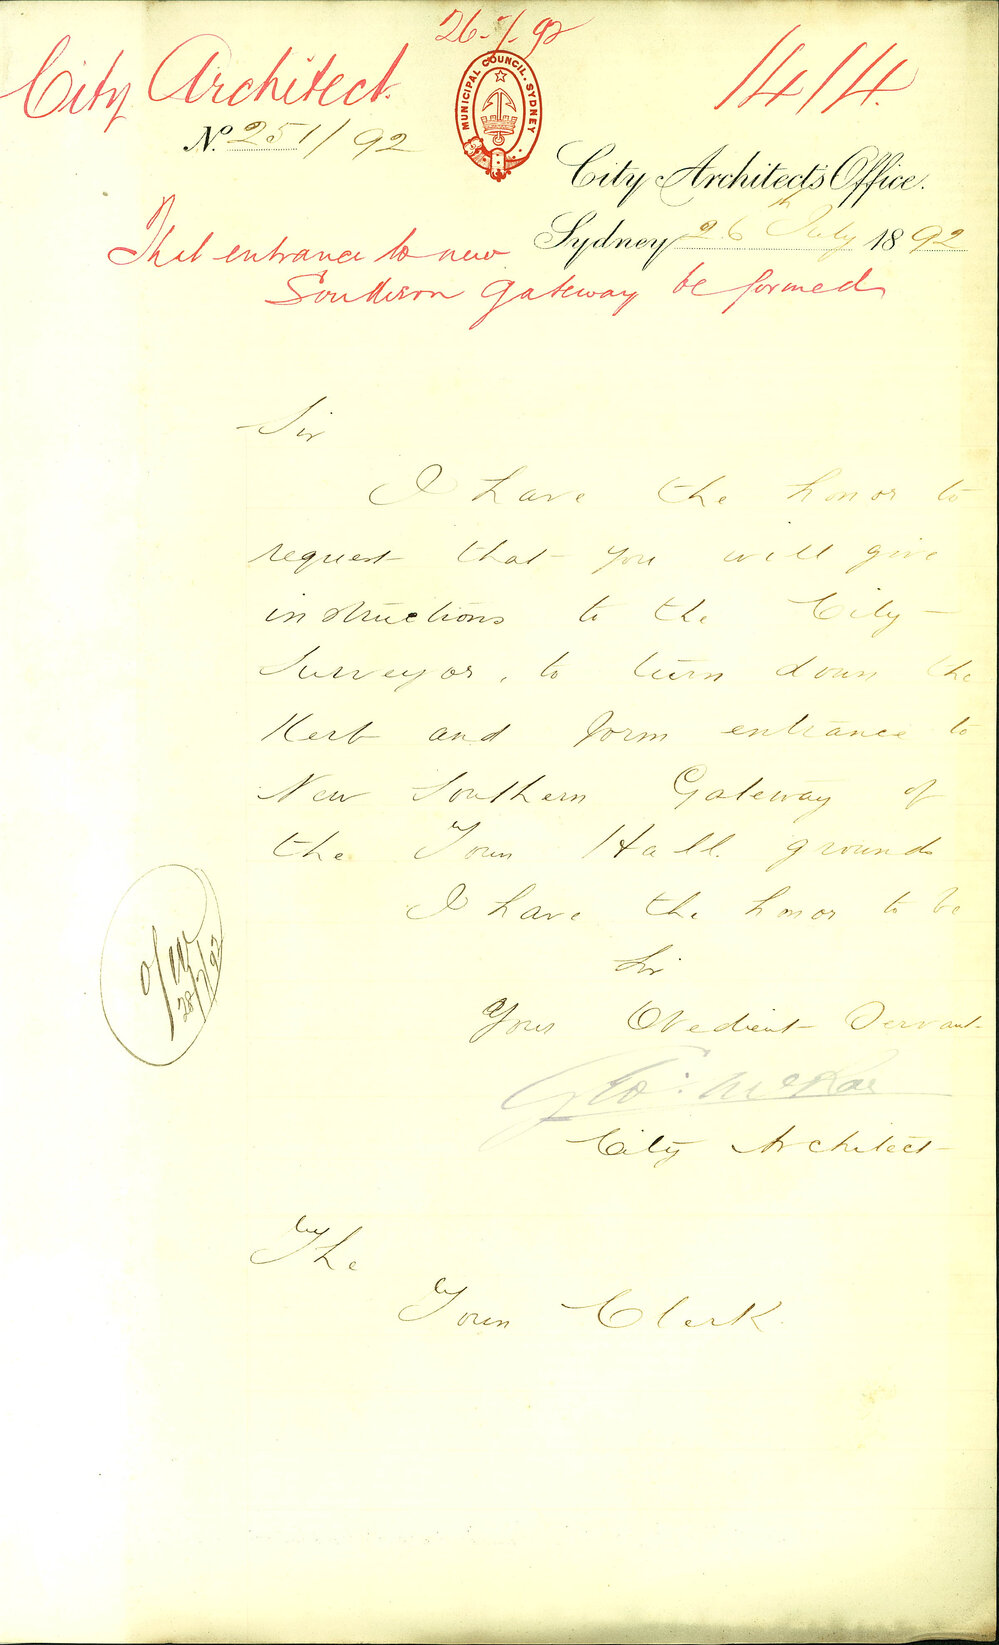 26.7.92
City Architect.
1414.
MUNICIPAL COUNCIL. SYDNEY
No. 251/92
City Architect's Office.
Sydney 26th July 1892
That entrance to new
Southern Gateway be formed
Sir
I have the honor to
request that you will give
instructions to the City
Surveyor, to turn down the
Kerb and form entrance to
New Southern Gateway of
the Town Hall grounds
I have the honor to be
Sir
Your Obedient Servant
Geo: McRae
City Architect
28/7/92
The
Town Clerk